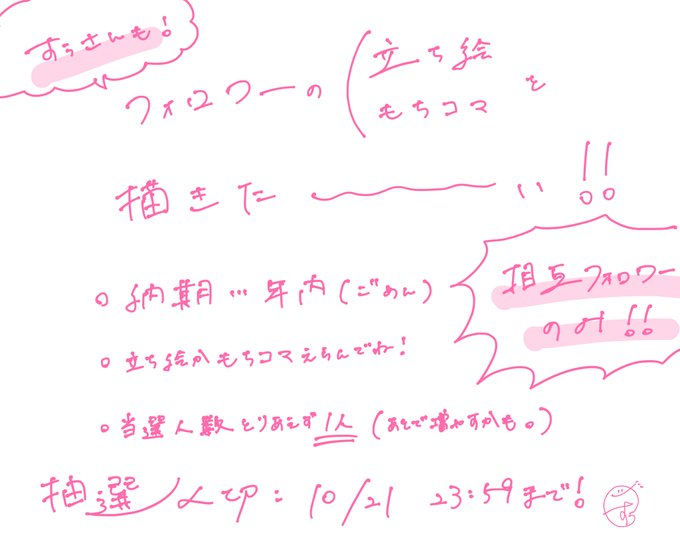 すぅさんも!
フォロワーの(立ち絵
もちコマ を
描きた〜〜い!!
相互フォロワー
のみ!!
○ 納期…年内(ごめん)
○ 立ち絵かもちコマえらんでね!
○ 当選人数とりあえず1人(あとで増やすかも。)
抽選〆切:10/21 23:59まで!